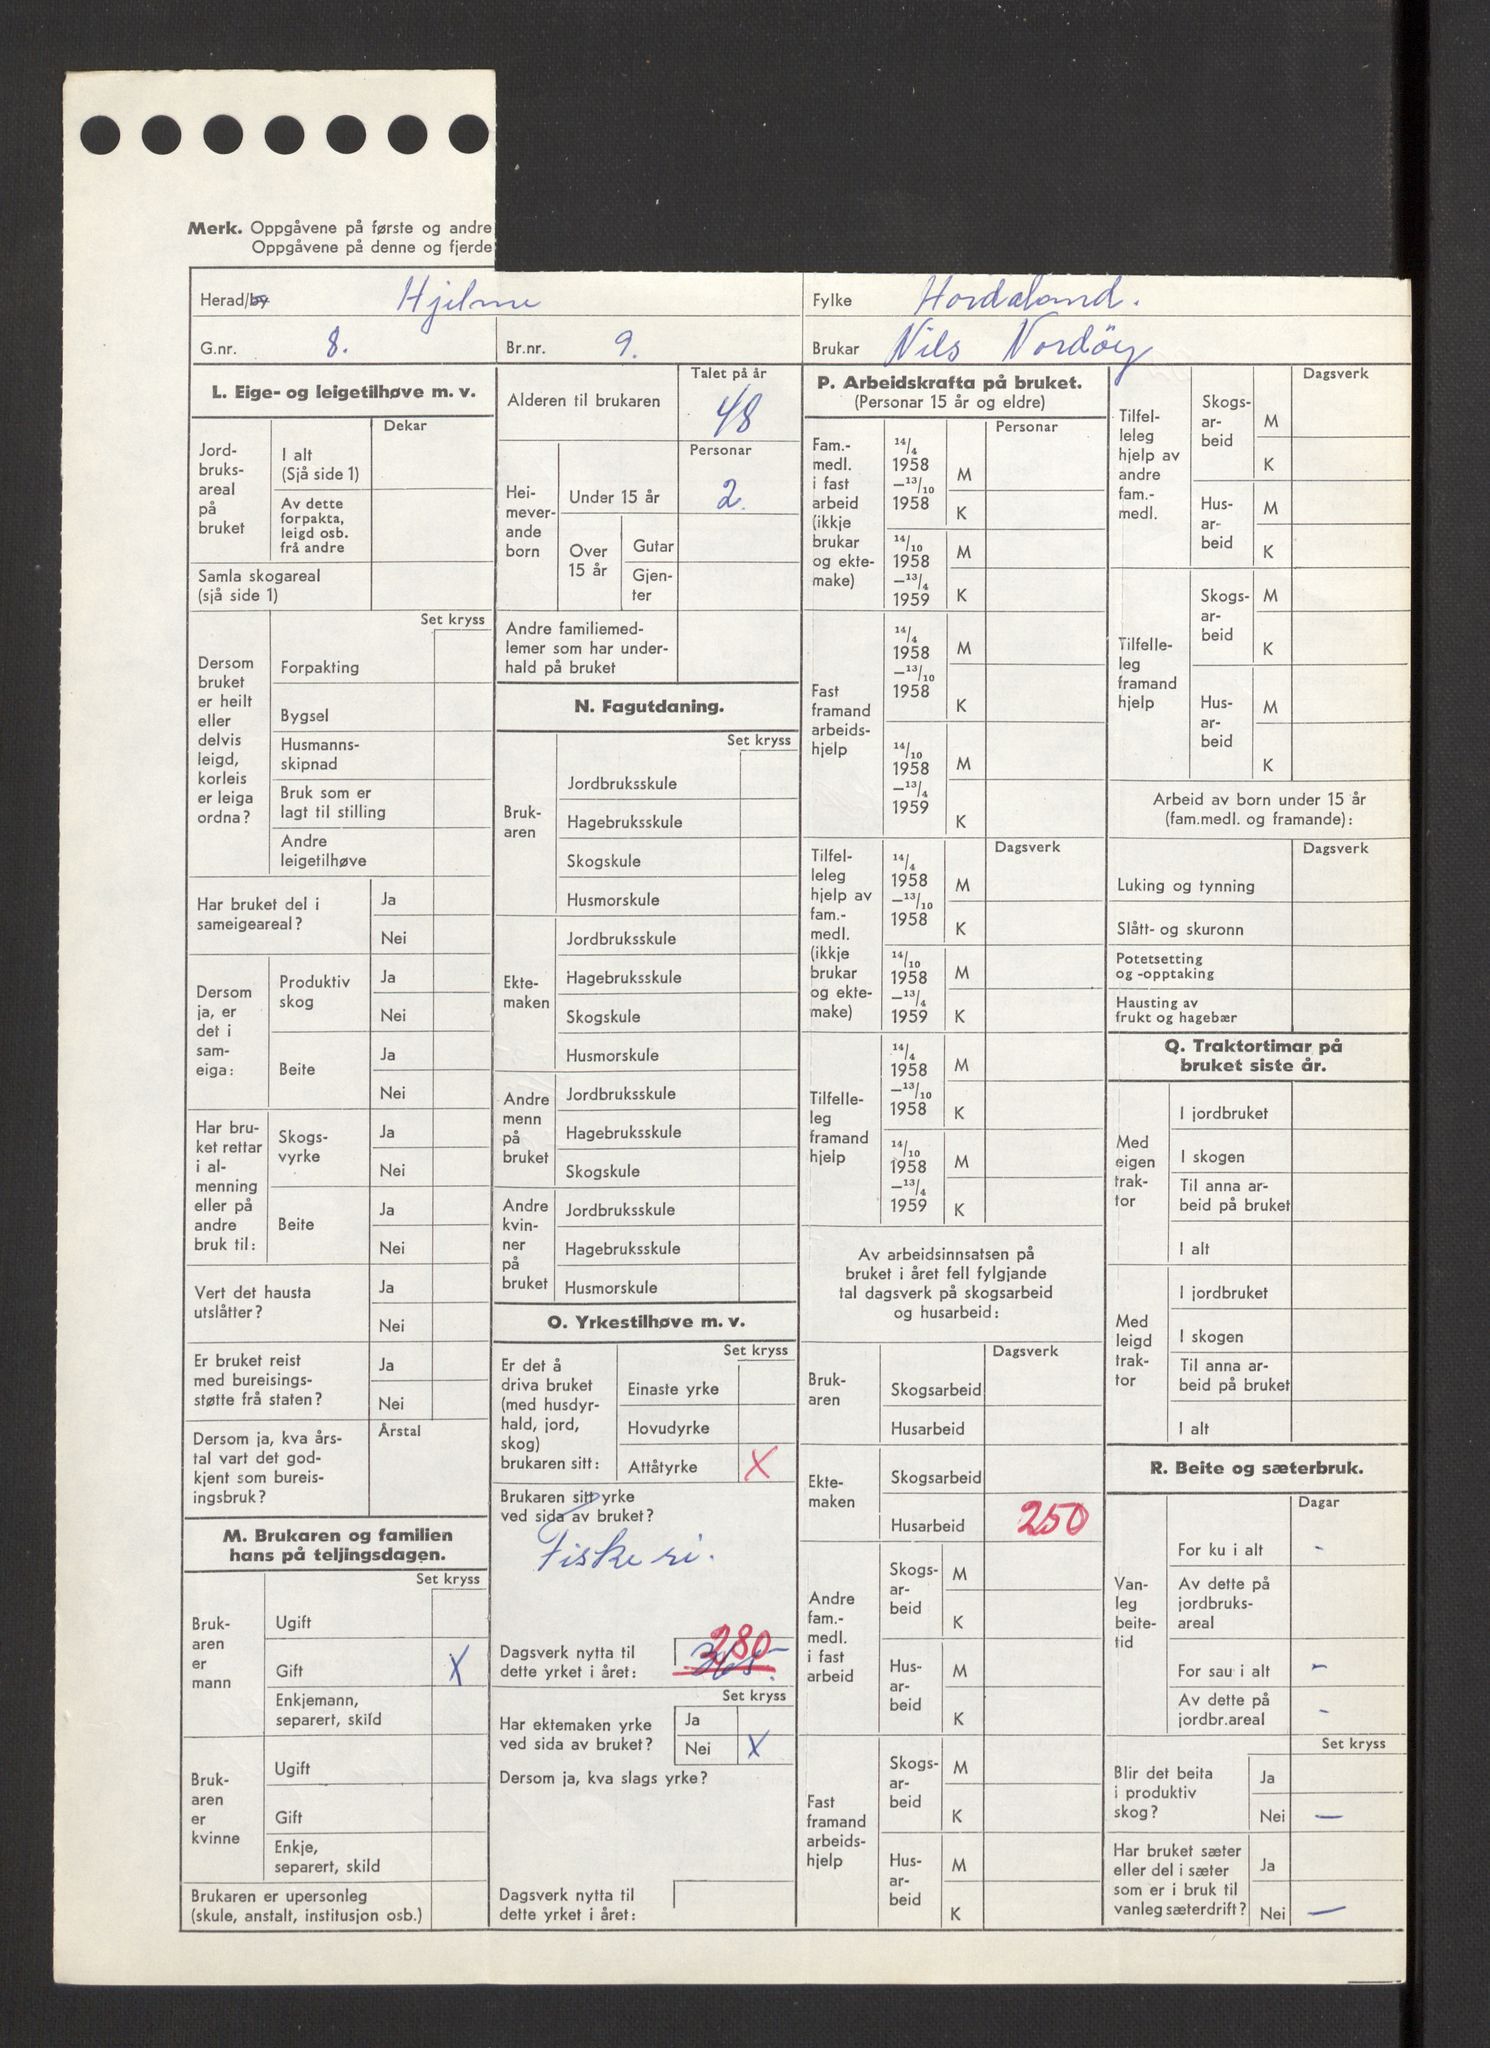 Merk. Oppgåvene på første og andre
Oppgåvene på denne og fjerde
Herad/by Hjelme
Fylke Hordaland.
G.nr. 8.
Br.nr. 9.
Brukar Nils Nordöy
L. Eige- og leigetilhøve m. v.
Dekar
Jord-
bruks-
areal
på
bruket
I alt
(Sjå side 1)
Av dette
forpakta,
leigd osb.
frå andre
Samla skogareal
(sjå side 1)
Set kryss
Dersom
bruket
er heilt
eller
delvis
leigd,
korleis
er leiga
ordna?
Forpakting
Bygsel
Husmanns-
skipnad
Bruk som er
lagt til stilling
Andre
leigetilhøve
Har bruket del i
sameigeareal?
Ja
Nei
Dersom
ja, er
det i
sam-
eiga:
Produktiv
skog
Ja
Nei
Beite
Ja
Nei
Har bru-
ket rettar
i al-
menning
eller på
andre
bruk til:
Skogs-
vyrke
Ja
Nei
Beite
Ja
Nei
Vert det hausta
utslåtter?
Ja
Nei
Er bruket reist
med bureisings-
støtte frå staten?
Ja
Nei
Dersom ja, kva års-
tal vart det god-
kjent som bureis-
ingsbruk?
Årstal
M. Brukaren og familien
hans på teljingsdagen.
Set kryss
Bruk-
aren
er
mann
Ugift
Gift X
Enkjemann,
separert, skild
Bruk-
aren
er
kvinne
Ugift
Gift
Enkje,
separert, skild
Brukaren er upersonleg
(skule, anstalt, institusjon osb.)
Talet på år
Alderen til brukaren 48
Personar
Hei-
mever-
ande
born
Under 15 år 2.
Over
15 år
Gutar
Gjen-
ter
Andre familiemed-
lemer som har under-
hald på bruket
N. Fagutdaning.
Set kryss
Bruk-
aren
Jordbruksskule
Hagebruksskule
Skogskule
Husmorskule
Ekte-
maken
Jordbruksskule
Hagebruksskule
Skogskule
Husmorskule
Andre
menn
på
bruket
Jordbruksskule
Hagebruksskule
Skogskule
Andre
kvin-
ner
på
bruket
Jordbruksskule
Hagebruksskule
Husmorskule
O. Yrkestilhøve m. v.
Set kryss
Er det å
driva bruket
(med husdyr-
hald, jord,
skog)
brukaren sitt:
Einaste yrke
Hovudyrke
Attåtyrke X
Brukaren sitt yrke
ved sida av bruket?
Fiskeri.
Dagsverk nytta til
dette yrket i året: 280
Set kryss
Har ektemaken yrke
ved sida av bruket?
Ja
Nei X
Dersom ja, kva slags yrke?
Dagsverk nytta til
dette yrket i året:
P. Arbeidskrafta på bruket.
(Personar 15 år og eldre)
Personar
Fam.-
medl.
i fast
arbeid
(ikkje
brukar
og ekte-
make)
14/4
1958
—13/10
1958
M
K
14/10
1958
—13/4
1959
M
K
Fast
framand
arbeids-
hjelp
14/4
1958
—13/10
1958
M
K
14/10
1958
—13/4
1959
M
K
Dagsverk
Tilfel-
leleg
hjelp av
fam.-
medl.
(ikkje
brukar
og ekte-
make)
14/4
1958
—13/10
1958
M
K
14/10
1958
—13/4
1959
M
K
Tilfelle-
leg
framand
hjelp
14/4
1958
—13/10
1958
M
K
14/10
1958
—13/4
1959
M
K
Av arbeidsinnsatsen på
bruket i året fell fylgjande
tal dagsverk på skogsarbeid
og husarbeid:
Dagsverk
Bruk-
aren
Skogsarbeid
Husarbeid
Ekte-
maken
Skogsarbeid
Husarbeid 250
Andre
fam.-
medl.
i fast
arbeid
Skogs-
ar-
beid
M
K
Hus-
ar-
beid
M
K
Fast
framand
arbeids-
hjelp
Skogs-
ar-
beid
M
K
Hus-
ar-
beid
M
K
Dagsverk
Tilfel-
leleg
hjelp av
andre
fam.-
medl.
Skogs-
ar-
beid
M
K
Hus-
ar-
beid
M
K
Tilfelle-
leg
framand
hjelp
Skogs-
ar-
beid
M
K
Hus-
ar-
beid
M
K
Arbeid av born under 15 år
(fam.medl. og framande):
Dagsverk
Luking og tynning
Slått- og skuronn
Potetsetting
og -opptaking
Hausting av
frukt og hagebær
Q. Traktortimar på
bruket siste år.
Med
eigen
trak-
tor
I jordbruket
I skogen
Til anna ar-
beid på bruket
I alt
Med
leigd
trak-
tor
I jordbruket
I skogen
Til anna ar-
beid på bruket
I alt
R. Beite og sæterbruk.
Dagar
Van-
leg
beite-
tid
For ku i alt -
Av dette på
jordbruks-
areal
For sau i alt -
Av dette på
jordbr.areal -
Set kryss
Blir det beita
i produktiv
skog?
Ja
Nei —
Har bruket sæter
eller del i sæter
som er i bruk til
vanleg sæterdrift?
Ja
Nei —